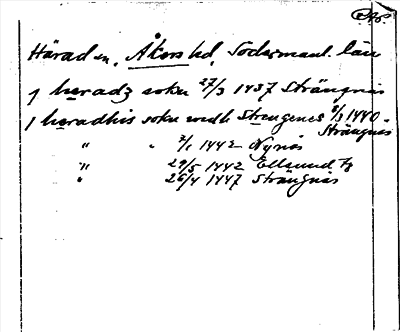 Härad sn, Åkers hd, Södermanl. län
j heradz sokn 27/3 1437 Strängnäs
j heradhis sokn widh Strengenes 8/3 1440 Strängnäs
" " 2/1 1442 Nynäs
" 29/5 1442
" 26/4 1447 Strängnäs